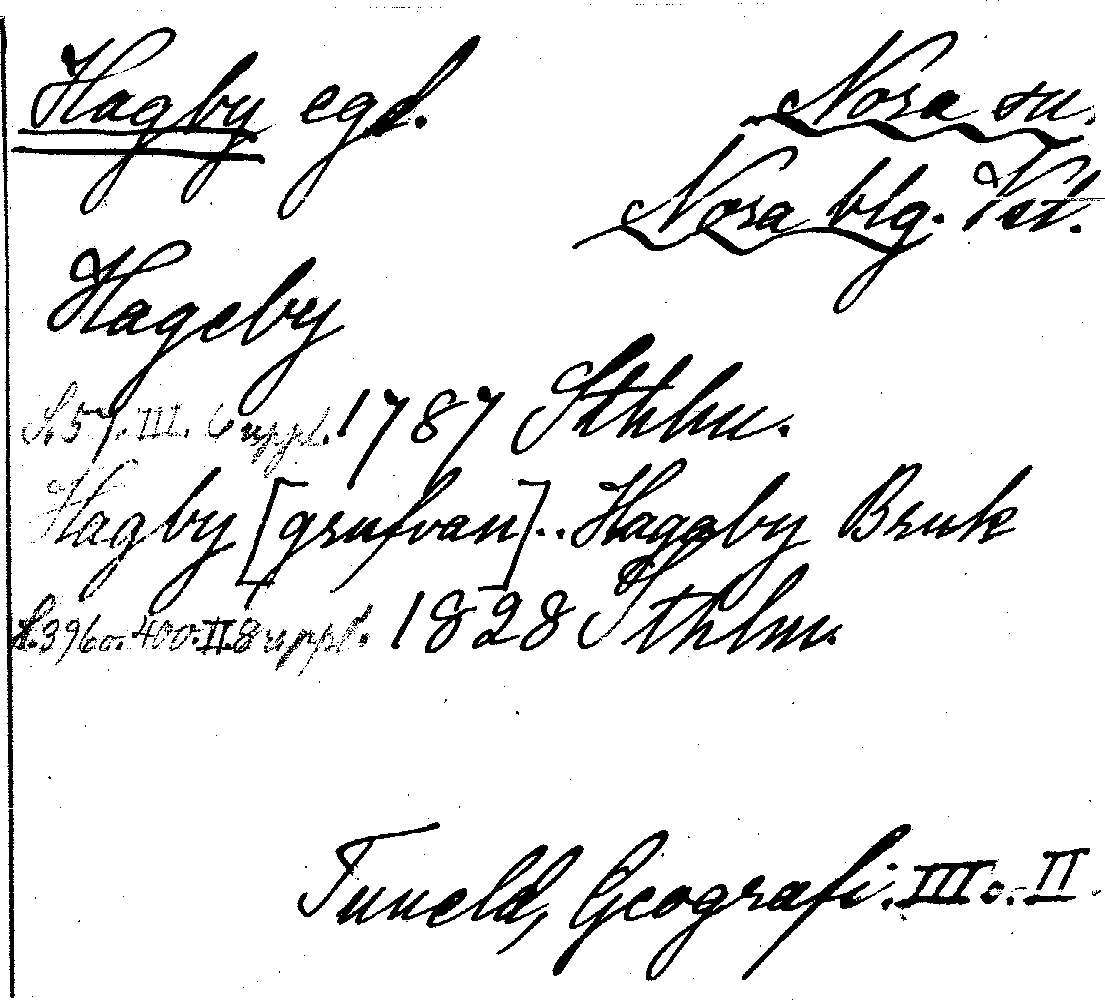 Hagby egd. Nora sn.
Nora blg. Vst.
Hageby
S. 57. III. 6 uppl. 1787 Sthlm.
Hagby [grufvan].. Hagaby Bruk
S. 396 o. 400. II. 8 uppl. 1828 Sthlm.
Tuneld, Geografi. III o. II.